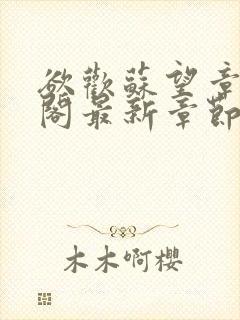 欲歡蘇望章
閣最新章節
木木啊櫻